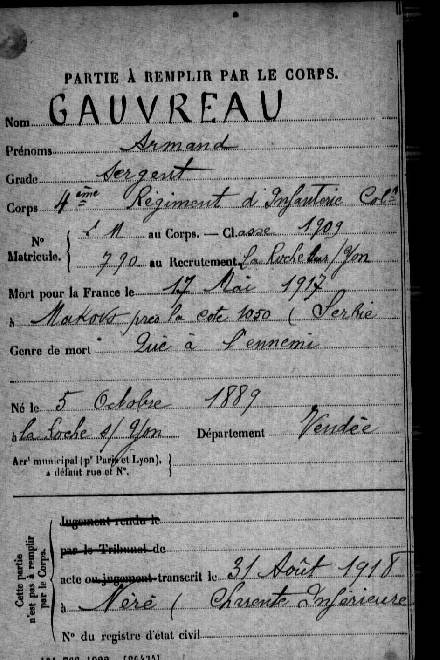 PARTIE À REMPLIR PAR LE CORPS.
Nom GAUVREAU
Prénoms Armand
Grade Sergent
Corps 4ème Régiment d'Infanterie Col
N° Matricule. au Corps. — Classe 1909
790 au Recrutement La Roche sur/Yon
Mort pour la France le 17 Mai 1917
à Makovo près la cote 1050 (Serbie
Genre de mort Tué à l'ennemi
Né le 5 Octobre 1889
à la Roche s/Yon Département Vendée
Arrt municipal (pr Paris et Lyon), à défaut rue et N°.
Cette partie n'est pas à remplir par le Corps.
Jugement rendu le
par le Tribunal de
acte ou jugement transcrit le 31 Août 1918
à Néré (Charente Inférieure
N° du registre d'état civil